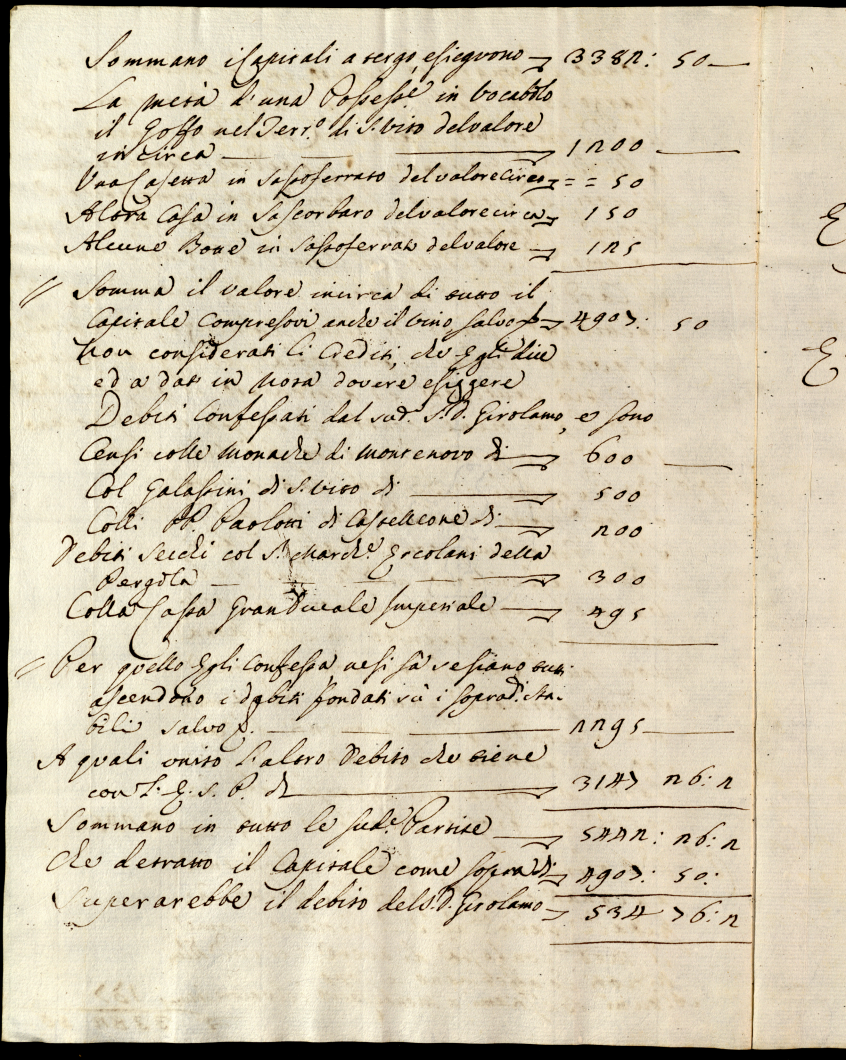 Sommano i Capitali a tergo, e sieguono 3382: 50
La metà d'una Possessē in Vocabolo
il Goffo nel Terr.º di S. Vito del valore
in circa 1200
Una Casetta in Sassoferrato del valore circa = = 50
Altra Casa in Sascorbaro del valore circa 150
Alcune Bove in Sassoferrato del valore 125
// Somma il valore incirca di tutto il
Capitale compresovi anche il vino salvo 4907: 50
non considerati li Crediti, che Egli dice
ed a dati in nota dovere esiggere
Debiti Confessati dal sud.º S. D. Girolamo, e sono
Censi colle Monache di Montenovo di 600
Col Galassini di S. Vito di 500
Colli PP. Paolotti di Castelleone di 200
Debiti secchi col S. March.e Ercolani della
Pergola 300
Colla Cassa GranDucale Imperiale 495
// Per quello Egli Confessa nè si sà se siano tutti
ascendono i debiti fondati sù i soprad. sta-
bili salvo 2295
A quali unito l'altro Debito che tiene
con L. E. S. P. di 3147 26: 2
Sommano in tutto le sud.e Partite 5442: 26: 2
che detratto il Capitale come sopra di 4907: 50:
Superarebbe il debito del S. D. Girolamo 534 76: 2